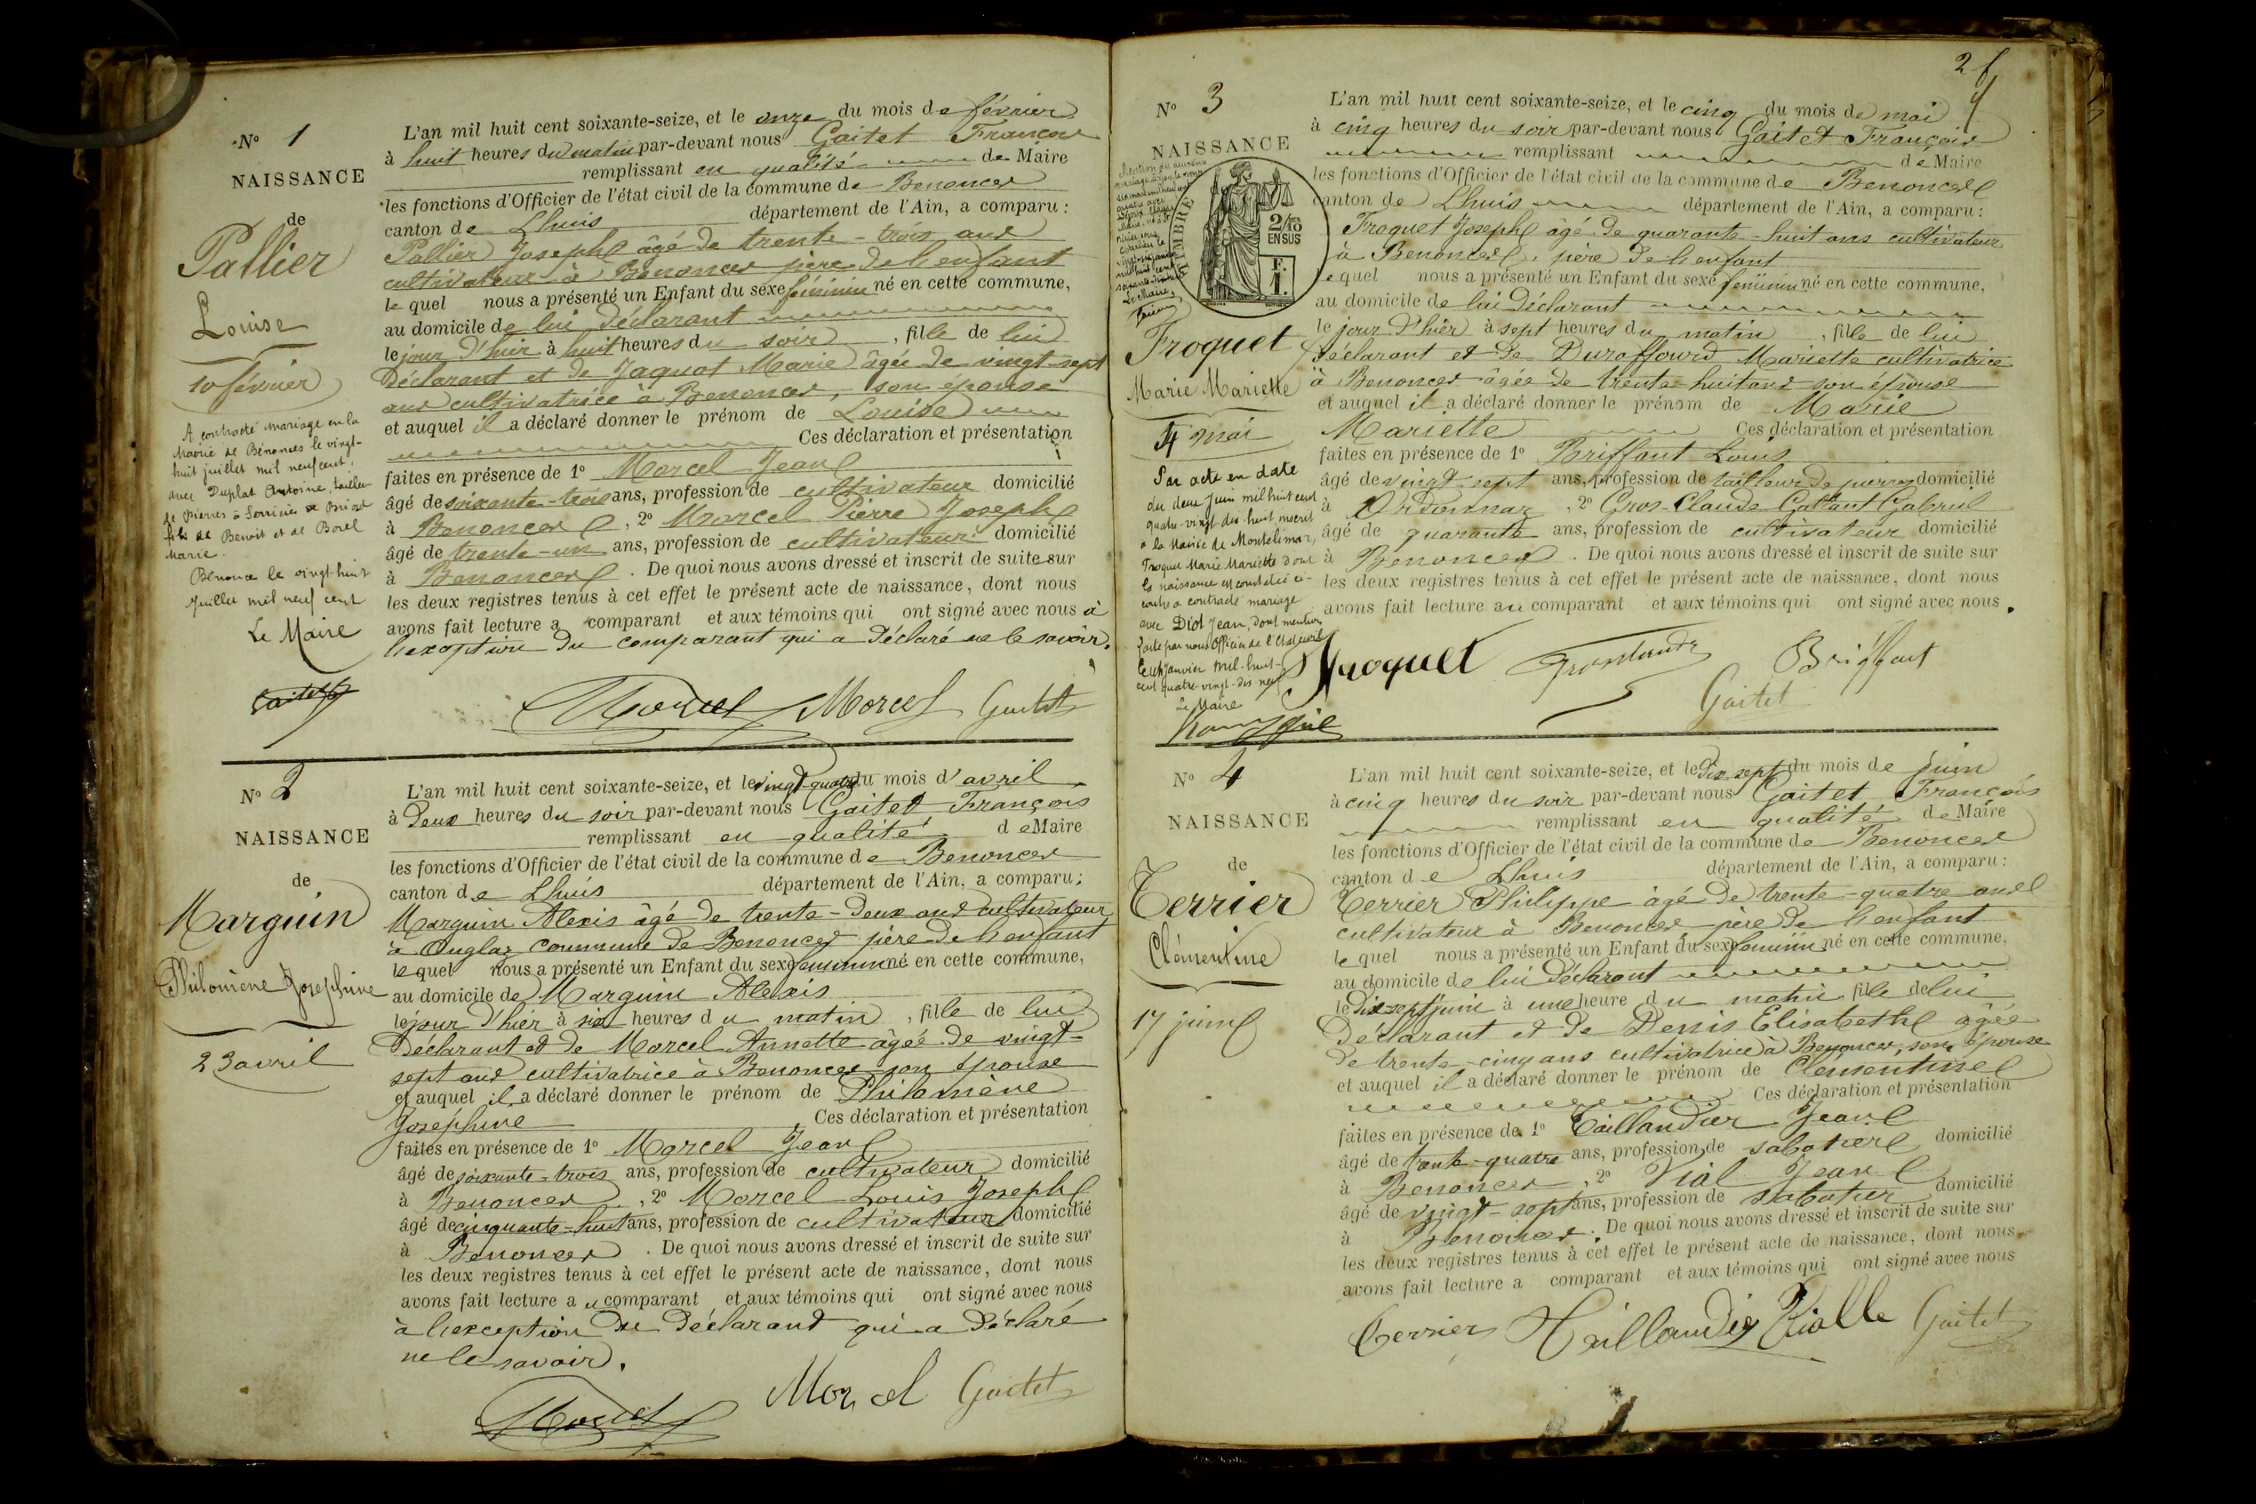 N° 1
NAISSANCE
de
Pallier
Louise
10 février
A contracté mariage en la
Mairie de Bénonces le vingt-
huit juillet mil neuf cent,
avec Duplat Antoine, tailleur
de pierres à Serrières de Briord
fils de Benoit et de Borel
Marie.
Bénonces le vingt-huit
Juillet mil neuf cent
Le Maire
Gaitet
L'an mil huit cent soixante-seize, et le onze du mois de février
à huit heures du matin par-devant nous Gaitet François
remplissant en qualité de Maire
les fonctions d'Officier de l'état civil de la commune de Benonces
canton de Lhuis département de l'Ain, a comparu :
Pallier Joseph âgé de trente-trois ans
cultivateur à Benonces père de l'enfant
lequel nous a présenté un Enfant du sexe féminin né en cette commune,
au domicile de lui déclarant
le jour d'hier à huit heures du soir, fille de lui
déclarant et de Jaquot Marie âgée de vingt-sept
ans cultivatrice à Benonces, son épouse
et auquel il a déclaré donner le prénom de Louise
Ces déclaration et présentation
faites en présence de 1° Marcel Jean
âgé de soixante-trois ans, profession de cultivateur domicilié
à Benonces, 2° Marcel Pierre Joseph
âgé de trente-un ans, profession de cultivateur domicilié
à Benonces. De quoi nous avons dressé et inscrit de suite sur
les deux registres tenus à cet effet le présent acte de naissance, dont nous
avons fait lecture a comparant et aux témoins qui ont signé avec nous à
l'exception du comparant qui a déclaré ne le savoir.
Marcel Morcel Gaitet
N° 2
NAISSANCE
de
Marguin
Philomène Joséphine
23 avril
L'an mil huit cent soixante-seize, et le vingt-quatre du mois d'avril
à deux heures du soir par-devant nous Gaitet François
remplissant en qualité de Maire
les fonctions d'Officier de l'état civil de la commune de Benonces
canton de Lhuis département de l'Ain, a comparu :
Marguin Alexis âgé de trente-deux ans cultivateur
à Onglaz commune de Benonces père de l'enfant
lequel nous a présenté un Enfant du sexe féminin né en cette commune,
au domicile de Marguin Alexis
le jour d'hier à six heures du matin, fille de lui
déclarant et de Marcel Annette âgée de vingt-
sept ans cultivatrice à Benonces son épouse
et auquel il a déclaré donner le prénom de Philomène
Joséphine Ces déclaration et présentation
faites en présence de 1° Marcel Jean
âgé de soixante-trois ans, profession de cultivateur domicilié
à Benonces, 2° Marcel Louis Joseph
âgé de cinquante-huit ans, profession de cultivateur domicilié
à Benonces. De quoi nous avons dressé et inscrit de suite sur
les deux registres tenus à cet effet le présent acte de naissance, dont nous
avons fait lecture au comparant et aux témoins qui ont signé avec nous
à l'exception du déclarant qui a déclaré
ne le savoir.
Marcel Morcel Gaitet
2 f
N° 3
NAISSANCE
TIMBRE
2/10
EN SUS
Le Maire
Froquet
Marie Mariette
4 mai
Par acte en date
du deux Juin mil huit cent
quatre-vingt-dix-huit inscrit
à la Mairie de Montelimar,
Froquet Marie Mariette dont
la naissance est constatée ci-
contre a contracté mariage
avec Diot Jean, dont mention
faite par nous Officier de l'Etat civil
Le Janvier mil-huit-
cent quatre-vingt-dix-neuf
Le Maire
L'an mil huit cent soixante-seize, et le cinq du mois de mai
à cinq heures du soir par-devant nous Gaitet François
remplissant de Maire
les fonctions d'Officier de l'état civil de la commune de Benonces
canton de Lhuis département de l'Ain, a comparu :
Froquet Joseph âgé de quarante-huit ans cultivateur
à Benonces, père de l'enfant
lequel nous a présenté un Enfant du sexe féminin né en cette commune,
au domicile de lui déclarant
le jour d'hier à sept heures du matin, fille de lui
déclarant et de Duraffourd Mariette cultivatrice
à Benonces âgée de trente-huit ans son épouse
et auquel il a déclaré donner le prénom de Marie
Mariette Ces déclaration et présentation
faites en présence de 1° Briffant Louis
âgé de vingt sept ans, profession de tailleur de pierres domicilié
à Ordonnaz, 2° Gros-Claude Gallant Gabriel
âgé de quarante ans, profession de cultivateur domicilié
à Benonces. De quoi nous avons dressé et inscrit de suite sur
les deux registres tenus à cet effet le présent acte de naissance, dont nous
avons fait lecture au comparant et aux témoins qui ont signé avec nous.
Froquet Briffant
Gaitet
N° 4
NAISSANCE
de
Terrier
Clémentine
17 juin
L'an mil huit cent soixante-seize, et le dix sept du mois de juin
à cinq heures du soir par-devant nous Gaitet François
remplissant en qualité de Maire
les fonctions d'Officier de l'état civil de la commune de Benonces
canton de Lhuis département de l'Ain, a comparu :
Terrier Philippe âgé de trente-quatre ans
cultivateur à Benonces père de l'enfant
lequel nous a présenté un Enfant du sexe féminin né en cette commune,
au domicile de lui déclarant
le dix-sept juin à une heure du matin fille de lui
déclarant et de Denis Elisabeth âgée
de trente-cinq ans cultivatrice à Benonces, son épouse
et auquel il a déclaré donner le prénom de Clémentine
Ces déclaration et présentation
faites en présence de 1° Taillandier Jean
âgé de trente-quatre ans, profession de sabotier domicilié
à Benonces, 2° Vial Jean
âgé de vingt-sept ans, profession de sabotier domicilié
à Benonces. De quoi nous avons dressé et inscrit de suite sur
les deux registres tenus à cet effet le présent acte de naissance, dont nous
avons fait lecture a comparant et aux témoins qui ont signé avec nous
Terrier Taillandier Vialle Gaitet